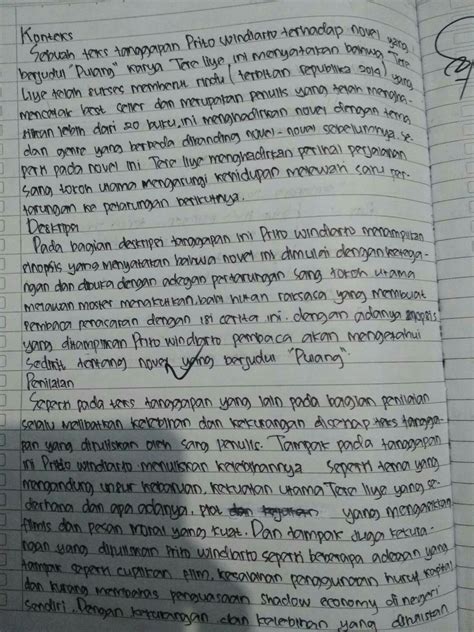 Konteks
Sebuah teks tanggapan Prito Windiarto terhadap novel yang
berjudul "Pulang" karya Tere liye, ini menyatakan bahwa Tere
Liye telah sukses membenut rindu (terbitan republika 2014) yang
mencetak best celler dan merupakan penulis yang telah mengha-
silkan lebih dari 20 buku, ini menghadirkan novel dengan tema
dan genre yang berbeda dibanding novel-novel sebelumnya. se-
perti pada novel ini Tere liye menghadirkan perihal perjalanan
sang tokoh utama mengarungi kehidupan melewati satu per-
tarungan ke pertarungan berikutnya.
Deskripsi
Pada bagian deskripsi tanggapan ini Prito windiarto menampilkan
sinopsis yang menyatakan bahwa novel ini dimulai dengan ketega-
ngan dan dibuka dengan adegan pertarungan sang tokoh utama
melawan moster menakutkan, babi hutan raksasa yang membuat
pembaca penasaran dengan isi cerita ini. dengan adanya sinopsis
yang ditampilkan Prito windiarto pembaca akan mengetahui
sedikit tentang novel yang berjudul "Pulang".
Penilaian
Seperti pada teks tanggapan yang lain pada bagian penilaian
selalu melibatkan kelebihan dan kekurangan disetiap teks tangga-
pan yang dituliskan oleh sang penulis. Tampak pada tanggapan
ini Prito windiarto menuliskan kelebihannya seperti tema yang
mengandung unsur kebaruan, kekuatan utama Tere liye yang se-
derhana dan apa adanya, plot yang mengasikkan
filmis dan pesan moral yang kuat. Dan tampak juga kekura-
ngan yang dituliskan Prito windiarto seperti beberapa adegan yang
tampak seperti cuplikan film, kesalahan penggunaan huruf kapital
dan kurang membahas penguasaan shadow economy di negeri
sendiri. Dengan kekurangan dan kelebihan yang dituliskan